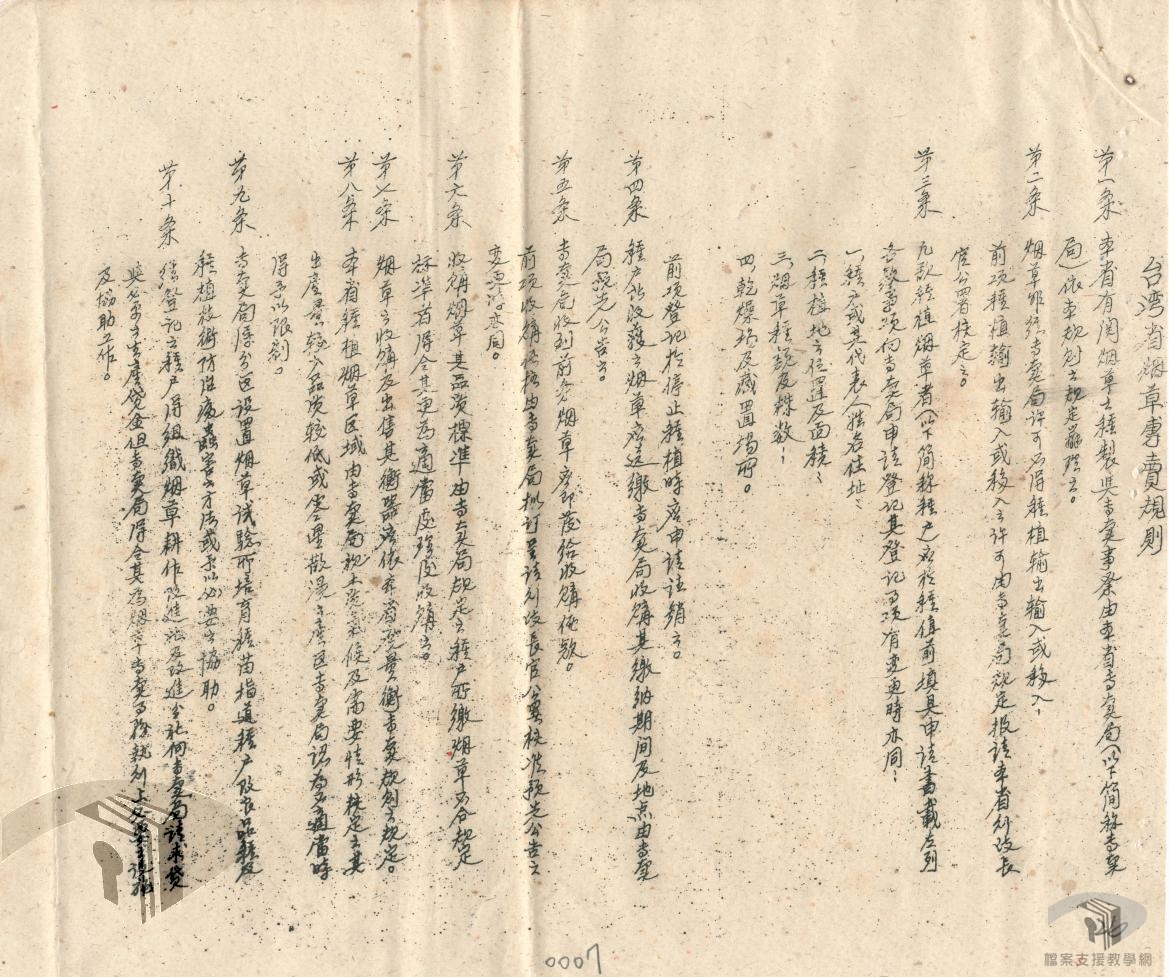 台湾省烟草專賣規則
第一条 本省有関烟草之種製與专卖事業由本省专卖局(以下簡称专卖
局)依本規則之規定辦理之。
第二条 烟草非經专卖局許可不得種植輸出輸入或移入,
前项種植輸出輸入或移入之許可由专卖局規定报請本省行政長
官公署核定之。
第三条 凡欲種植烟草者(以下簡称種户)应於種植前填具申請書載左列
各款事项向专卖局申請登記其登記事项有变更時亦同:
一、種户或其代表人姓名住址:
二、種植地之位置及面積:
三、烟草種類及株数:
四、乾燥場及藏置場所。
前项登記於停止種植時应申請註銷之。
第四条 種户所收穫之烟草应送繳专卖局收購其繳納期间及地点由专卖
局預先公告之。
第五条 专卖局收到前条烟草应即發给收購価款。
前项收購価格由专卖局拟订呈請行政長官公署核准預先公告之
变更時亦同。
第六条 收購烟草其品质標准由专卖局規定之種户所繳烟草不合規定
標準者得令其更为適當處理後收購之。
第七条 烟草之收購及出售其衡器应依本省度量衡专卖規則之規定。
第八条 本省種植烟草区域由专卖局視土壤氣候及需要情形核定之其
出産量較少品质較低或零星散漫之産区专卖局認为不適當時
得予以限制。
第九条 专卖局得分区设置烟草试驗所培育種苗指道種户改良品種及
種植技術防治病蟲害之方法或予以必要之協助。
第十条 經登記之種户得組織烟草耕作改進社及改進分社向专卖局請求貸
與必要之生産貸金但专卖局得令其为烟草专卖事務執行上必要之
及協助工作。
0007
檔案支援教學網